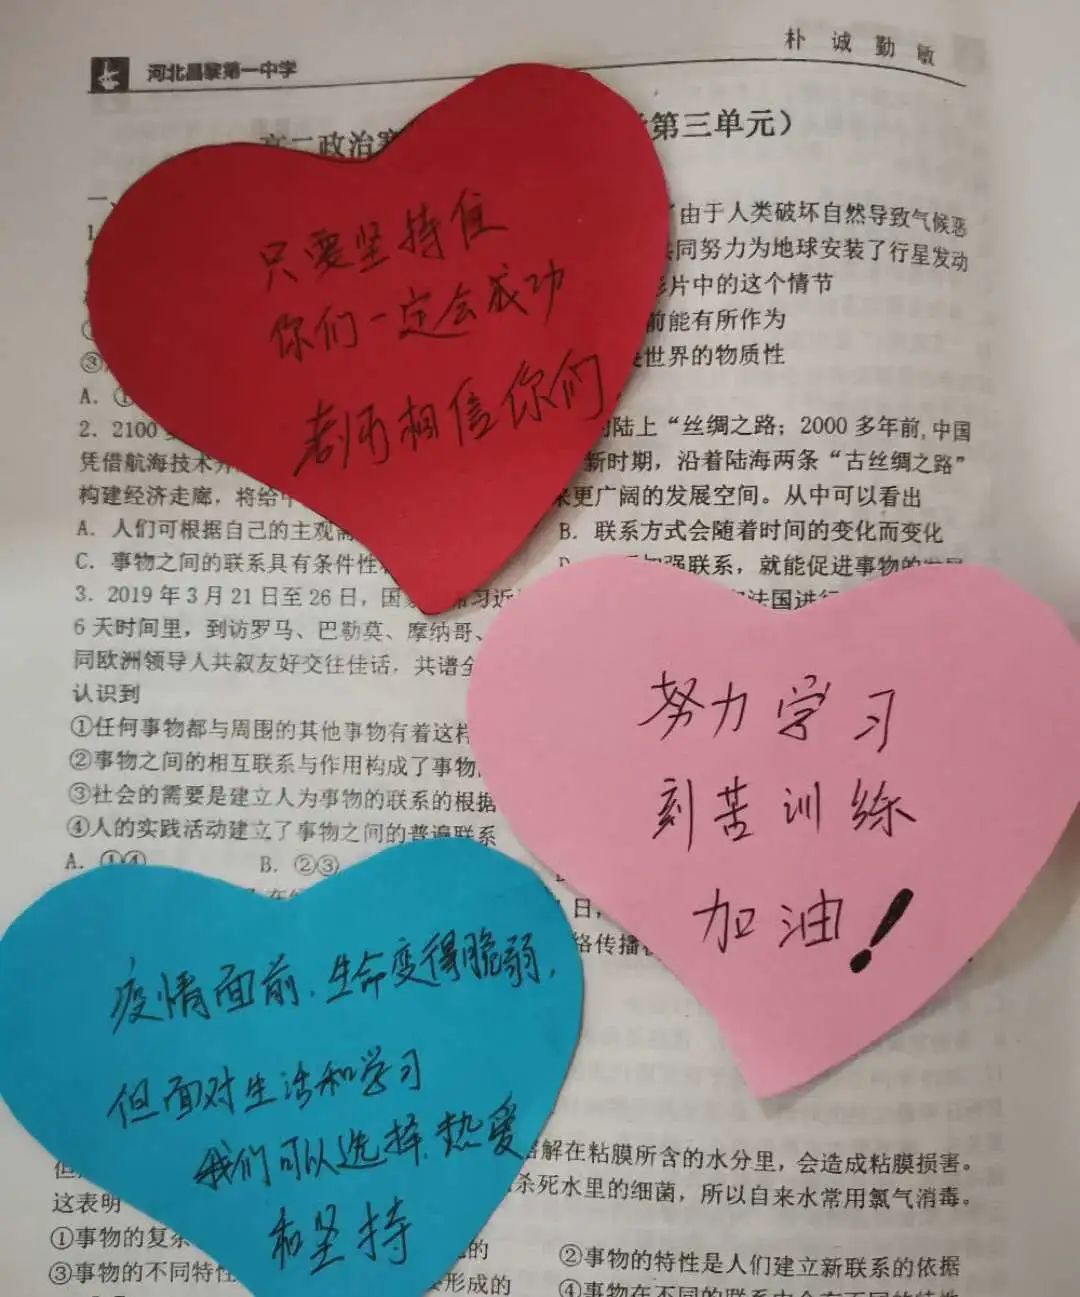 河北昌黎第一中学
朴诚勤敏
高二政治寒
第三单元）
只要坚持住
你们一定会成功
老师相信你们
由于人类破坏自然导致气候恶
共同努力为地球安装了行星发动
影片中的这个情节
前能有所作为
世界的物质性
A. ①
2. 2100
陆上“丝绸之路；2000 多年前,中国
凭借航海技术
新时期，沿着陆海两条“古丝绸之路”
构建经济走廊，将给
来更广阔的发展空间。从中可以看出
A. 人们可根据自己的主观
B. 联系方式会随着时间的变化而变化
C. 事物之间的联系具有条件性
加强联系，就能促进事物的发展
3. 2019 年 3 月 21 日至 26 日，国
习近
法国进行
6 天时间里，到访罗马、巴勒莫、摩纳哥、
同欧洲领导人共叙友好交往佳话，共谱
认识到
①任何事物都与周围的其他事物有着这样
②事物之间的相互联系与作用构成了事物
③社会的需要是建立人为事物的联系的根据
④人的实践活动建立了事物之间的普遍联系
A. ①④
B. ②③
努力学习
刻苦训练
加油！
日，
络传播
疫情面前，生命变得脆弱，
但面对生活和学习
我们可以选择热爱
和坚持
溶解在粘膜所含的水分里，会造成粘膜损害。
杀死水里的细菌，所以自来水常用氯气消毒。
这表明
①事物的复杂
的
②事物的特性是人们建立新联系的依据
③事物的不同特性
形成的
④事物在不同的联系中会有不同的特性